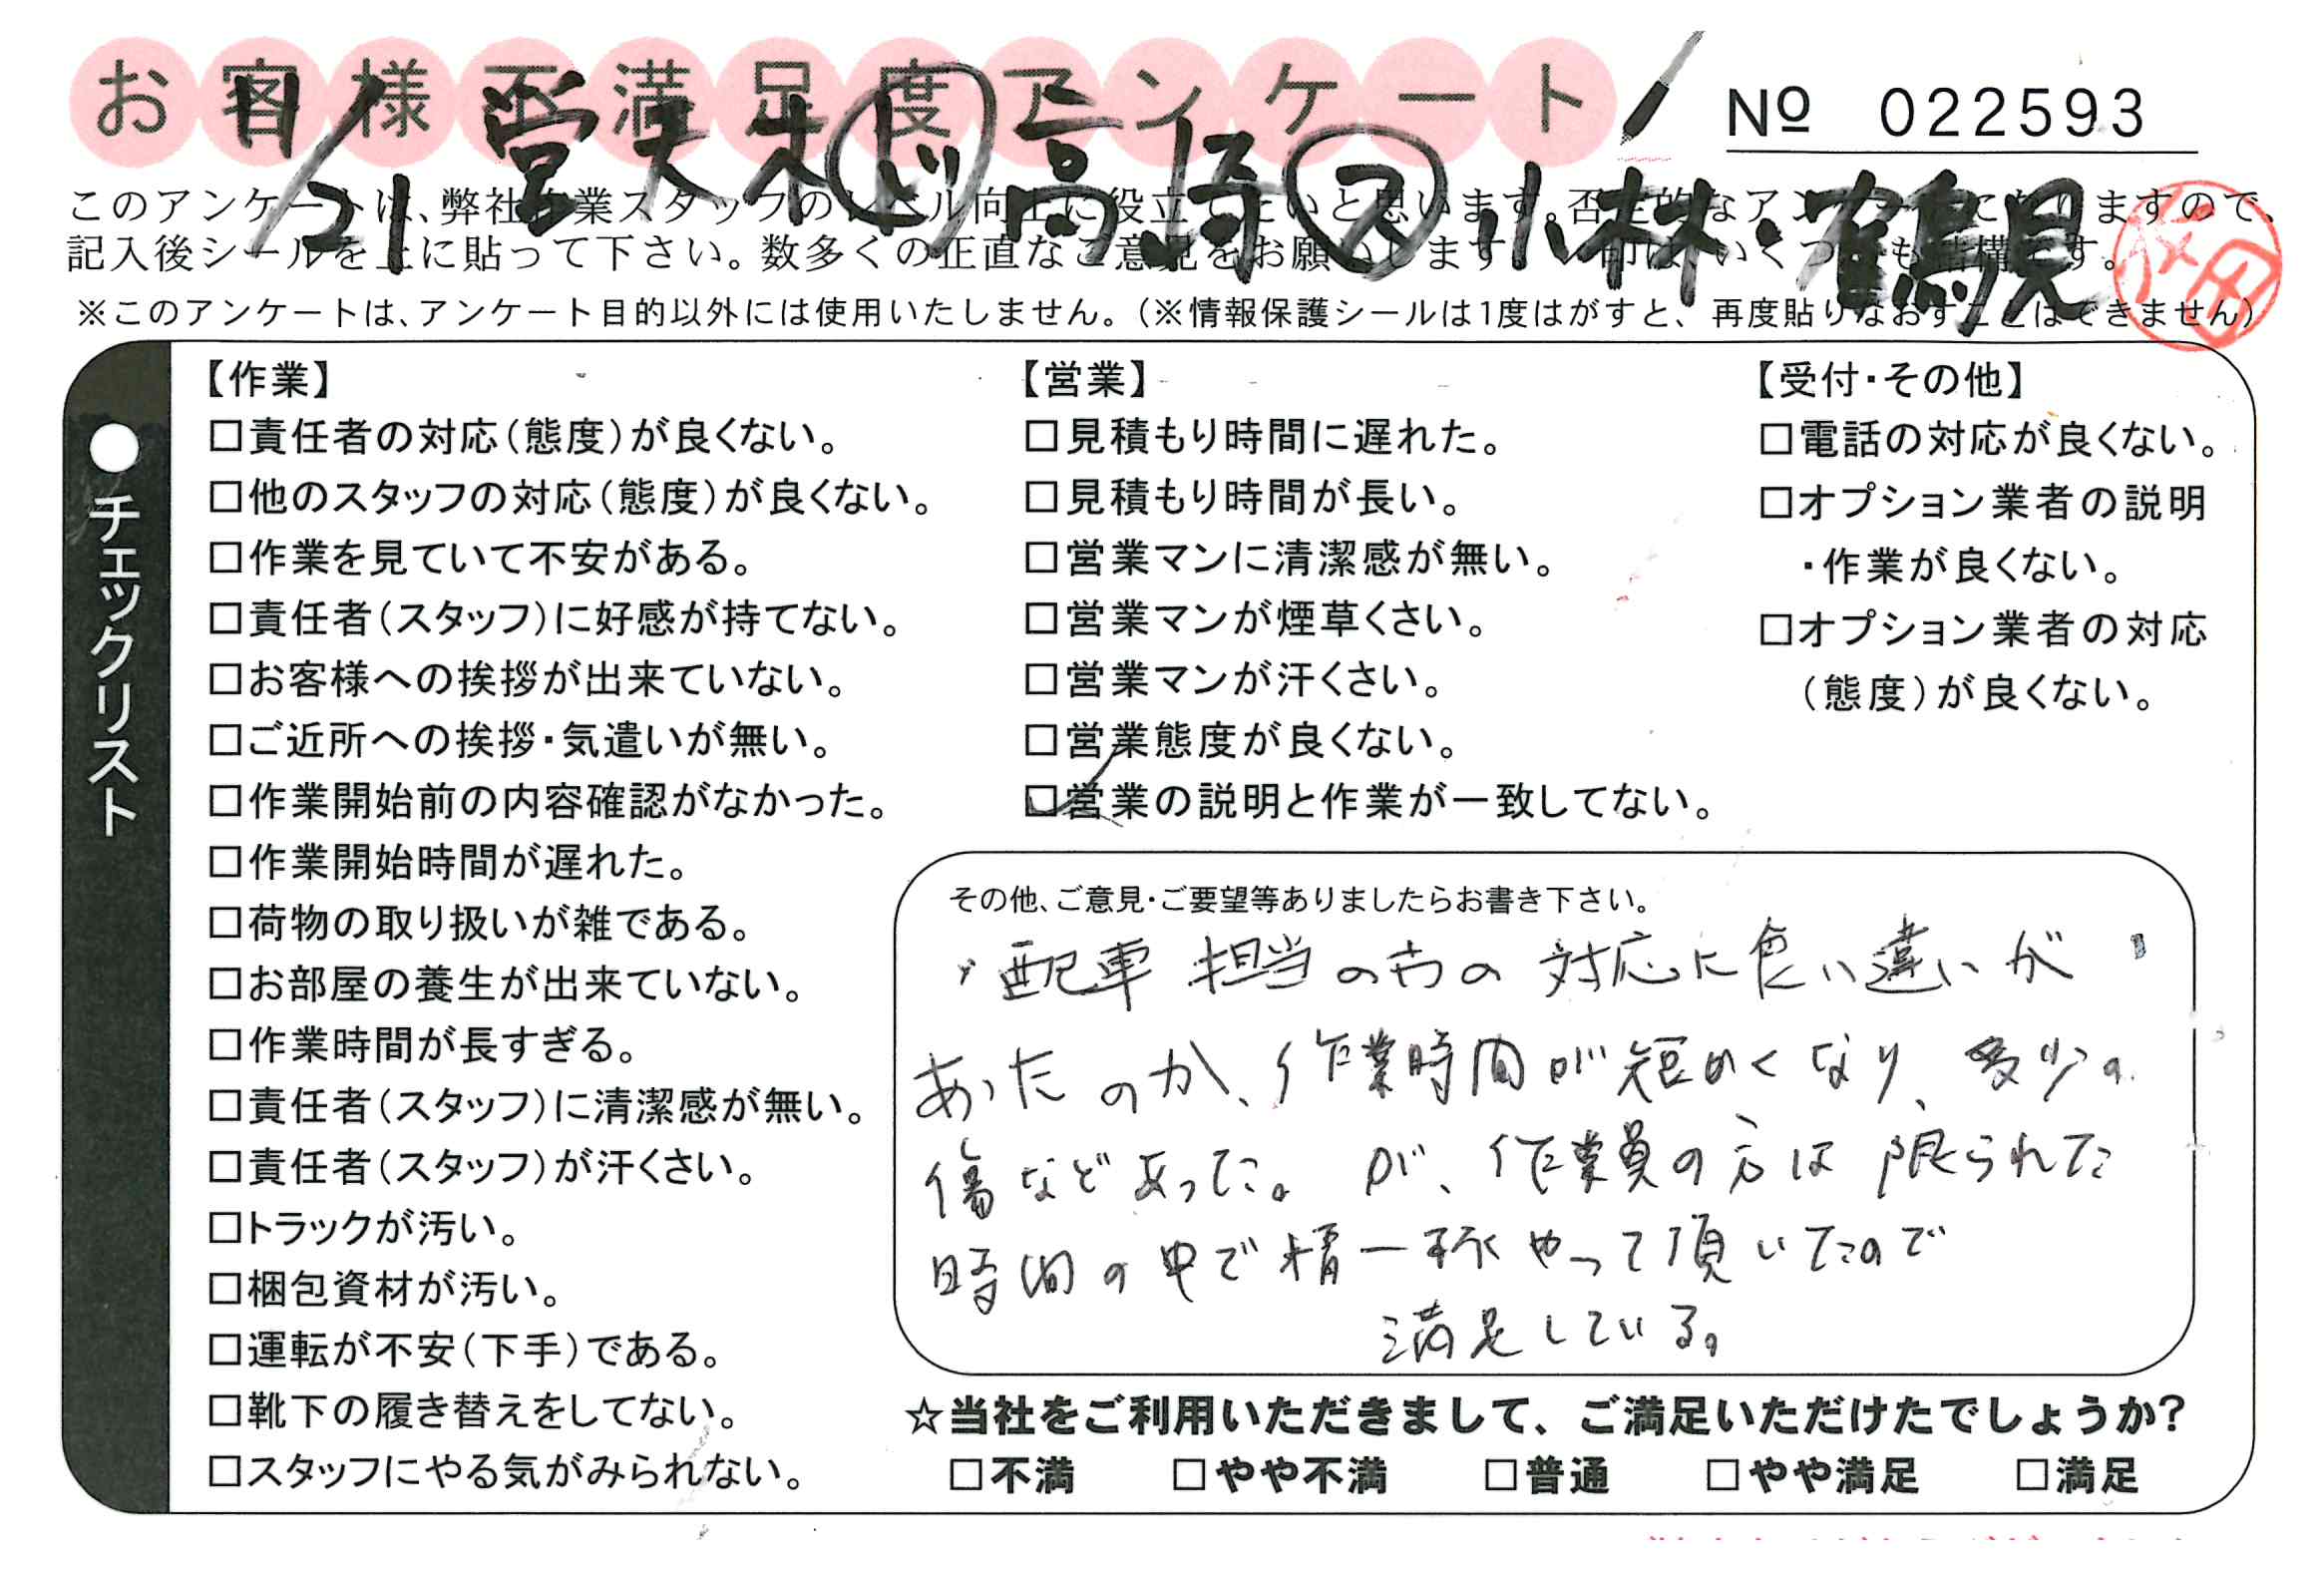 お客様不満足度アンケート
№ 022593
11/21 営 天木 ド 高崎 ス 小林・鶴見
このアンケートは、弊社作業スタッフのレベル向上に役立てたいと思います。否定的なアンケートになりますので、
記入後シールを上に貼って下さい。数多くの正直なご意見をお願いします。レ印は、いくつでも結構です。
※このアンケートは、アンケート目的以外には使用いたしません。(※情報保護シールは1度はがすと、再度貼りなおすことはできません)
●チェックリスト
【作業】
□責任者の対応(態度)が良くない。
□他のスタッフの対応(態度)が良くない。
□作業を見ていて不安がある。
□責任者(スタッフ)に好感が持てない。
□お客様への挨拶が出来ていない。
□ご近所への挨拶・気遣いが無い。
□作業開始前の内容確認がなかった。
□作業開始時間が遅れた。
□荷物の取り扱いが雑である。
□お部屋の養生が出来ていない。
□作業時間が長すぎる。
□責任者(スタッフ)に清潔感が無い。
□責任者(スタッフ)が汗くさい。
□トラックが汚い。
□梱包資材が汚い。
□運転が不安(下手)である。
□靴下の履き替えをしてない。
□スタッフにやる気がみられない。
【営業】
□見積もり時間に遅れた。
□見積もり時間が長い。
□営業マンに清潔感が無い。
□営業マンが煙草くさい。
□営業マンが汗くさい。
□営業態度が良くない。
☑営業の説明と作業が一致してない。
【受付・その他】
□電話の対応が良くない。
□オプション業者の説明
・作業が良くない。
□オプション業者の対応
(態度)が良くない。
その他、ご意見・ご要望等ありましたらお書き下さい。
・配車担当の方の対応に食い違いが
あったのか、作業時間が短めくなり、多少の
傷などあった。が、作業員の方は限られた
時間の中で精一杯やって頂いたので
満足している。
☆当社をご利用いただきまして、ご満足いただけたでしょうか?
□不満 □やや不満 □普通 □やや満足 □満足